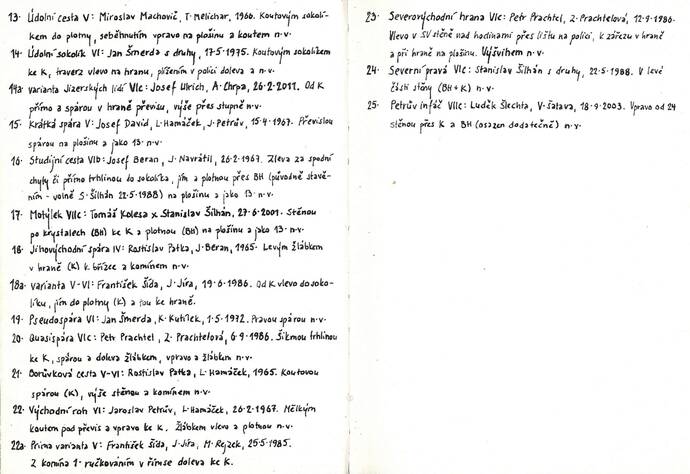 13. Lídolní cesta V: Miroslav Machovič, T. Melichar, 1960. Koutovým sokolí-
kem do plotny, seběhnutím vpravo na plošinu a koutem n.v.
14. Lídolní sokolík VI: Jan Šmerda s druhy, 17.5.1975. Koutovým sokolíkem
ke K, traverz vlevo na hranu, plížením v polici doleva a n.v.
14a varianta Jizerských lidí VIIc: Josef Ulrich, A. Chrpa, 26.2.2011. Od K
přímo a spárou v hraně převisu, výše přes stupně n.v.
15. Krátká spára V: Josef David, L. Hamáček, J. Petrův, 15.4.1967. Převislou
spárou na plošinu a jako 13 n.v.
16. Studijní cesta VIb: Josef Beran, J. Navrátil, 26.2.1967. Zleva za spodní
chyty či přímo trhlinou do sokolíka, jím a plotnou přes BH (původně stavě-
ním - volně S. Šilhán 22.5.1988) na plošinu a jako 13 n.v.
17. Motýlek VIIc: Tomáš Kolesa x Stanislav Šilhán, 27.6.2001. Stěnou
po krystalech (BH) ke K a plotnou (BH) na plošinu a jako 13 n.v.
18. Jihovýchodní spára IV: Rostislav Patka, J. Beran, 1965. Levým žlábkem
v hraně (K) k břízce a komínem n.v.
18a. varianta V-VI: František Šída, J. Jíra, 19.6.1986. Od K vlevo do soko-
líku, jím do plotny (K) a tou ke hraně.
19. Pseudospára VI: Jan Šmerda, K. Kutílek, 1.5.1972. Pravou spárou n.v.
20. Quasispára VIc: Petr Prachtel, Z. Prachtelová, 6.9.1986. Šikmou trhlinou
ke K, spárou a doleva žlábkem, vpravo a žlábkem n.v.
21. Borůvková cesta V-VI: Rostislav Patka, L. Hamáček, 1965. Koutovou
spárou (K), výše stěnou a komínem n.v.
22. Východní roh VI: Jaroslav Petrův, L. Hamáček, 26.2.1967. Mělkým
koutem pod převis a vpravo ke K. Žlábkem vlevo a plotnou n.v.
22a. Prima varianta V: František Šída, J. Jíra, M. Rejzek, 25.5.1985.
Z komína 1. ručkováním v římse doleva ke K.
23. Severovýchodní hrana VIc: Petr Prachtel, Z. Prachtelová, 12.9.1986.
Vlevo v SV stěně nad hodinami přes lištu na polici, k zářezu v hraně
a při hraně na plošinu. Výšvihem n.v.
24. Severní pravá VIc: Stanislav Šilhán s druhy, 22.5.1988. V levé
části stěny (BH+K) n.v.
25. Petrův infáč VIIc: Luděk Šlechta, V. Šatava, 18.9.2003. Vpravo od 24
stěnou přes K a BH (osazen dodatečně) n.v.